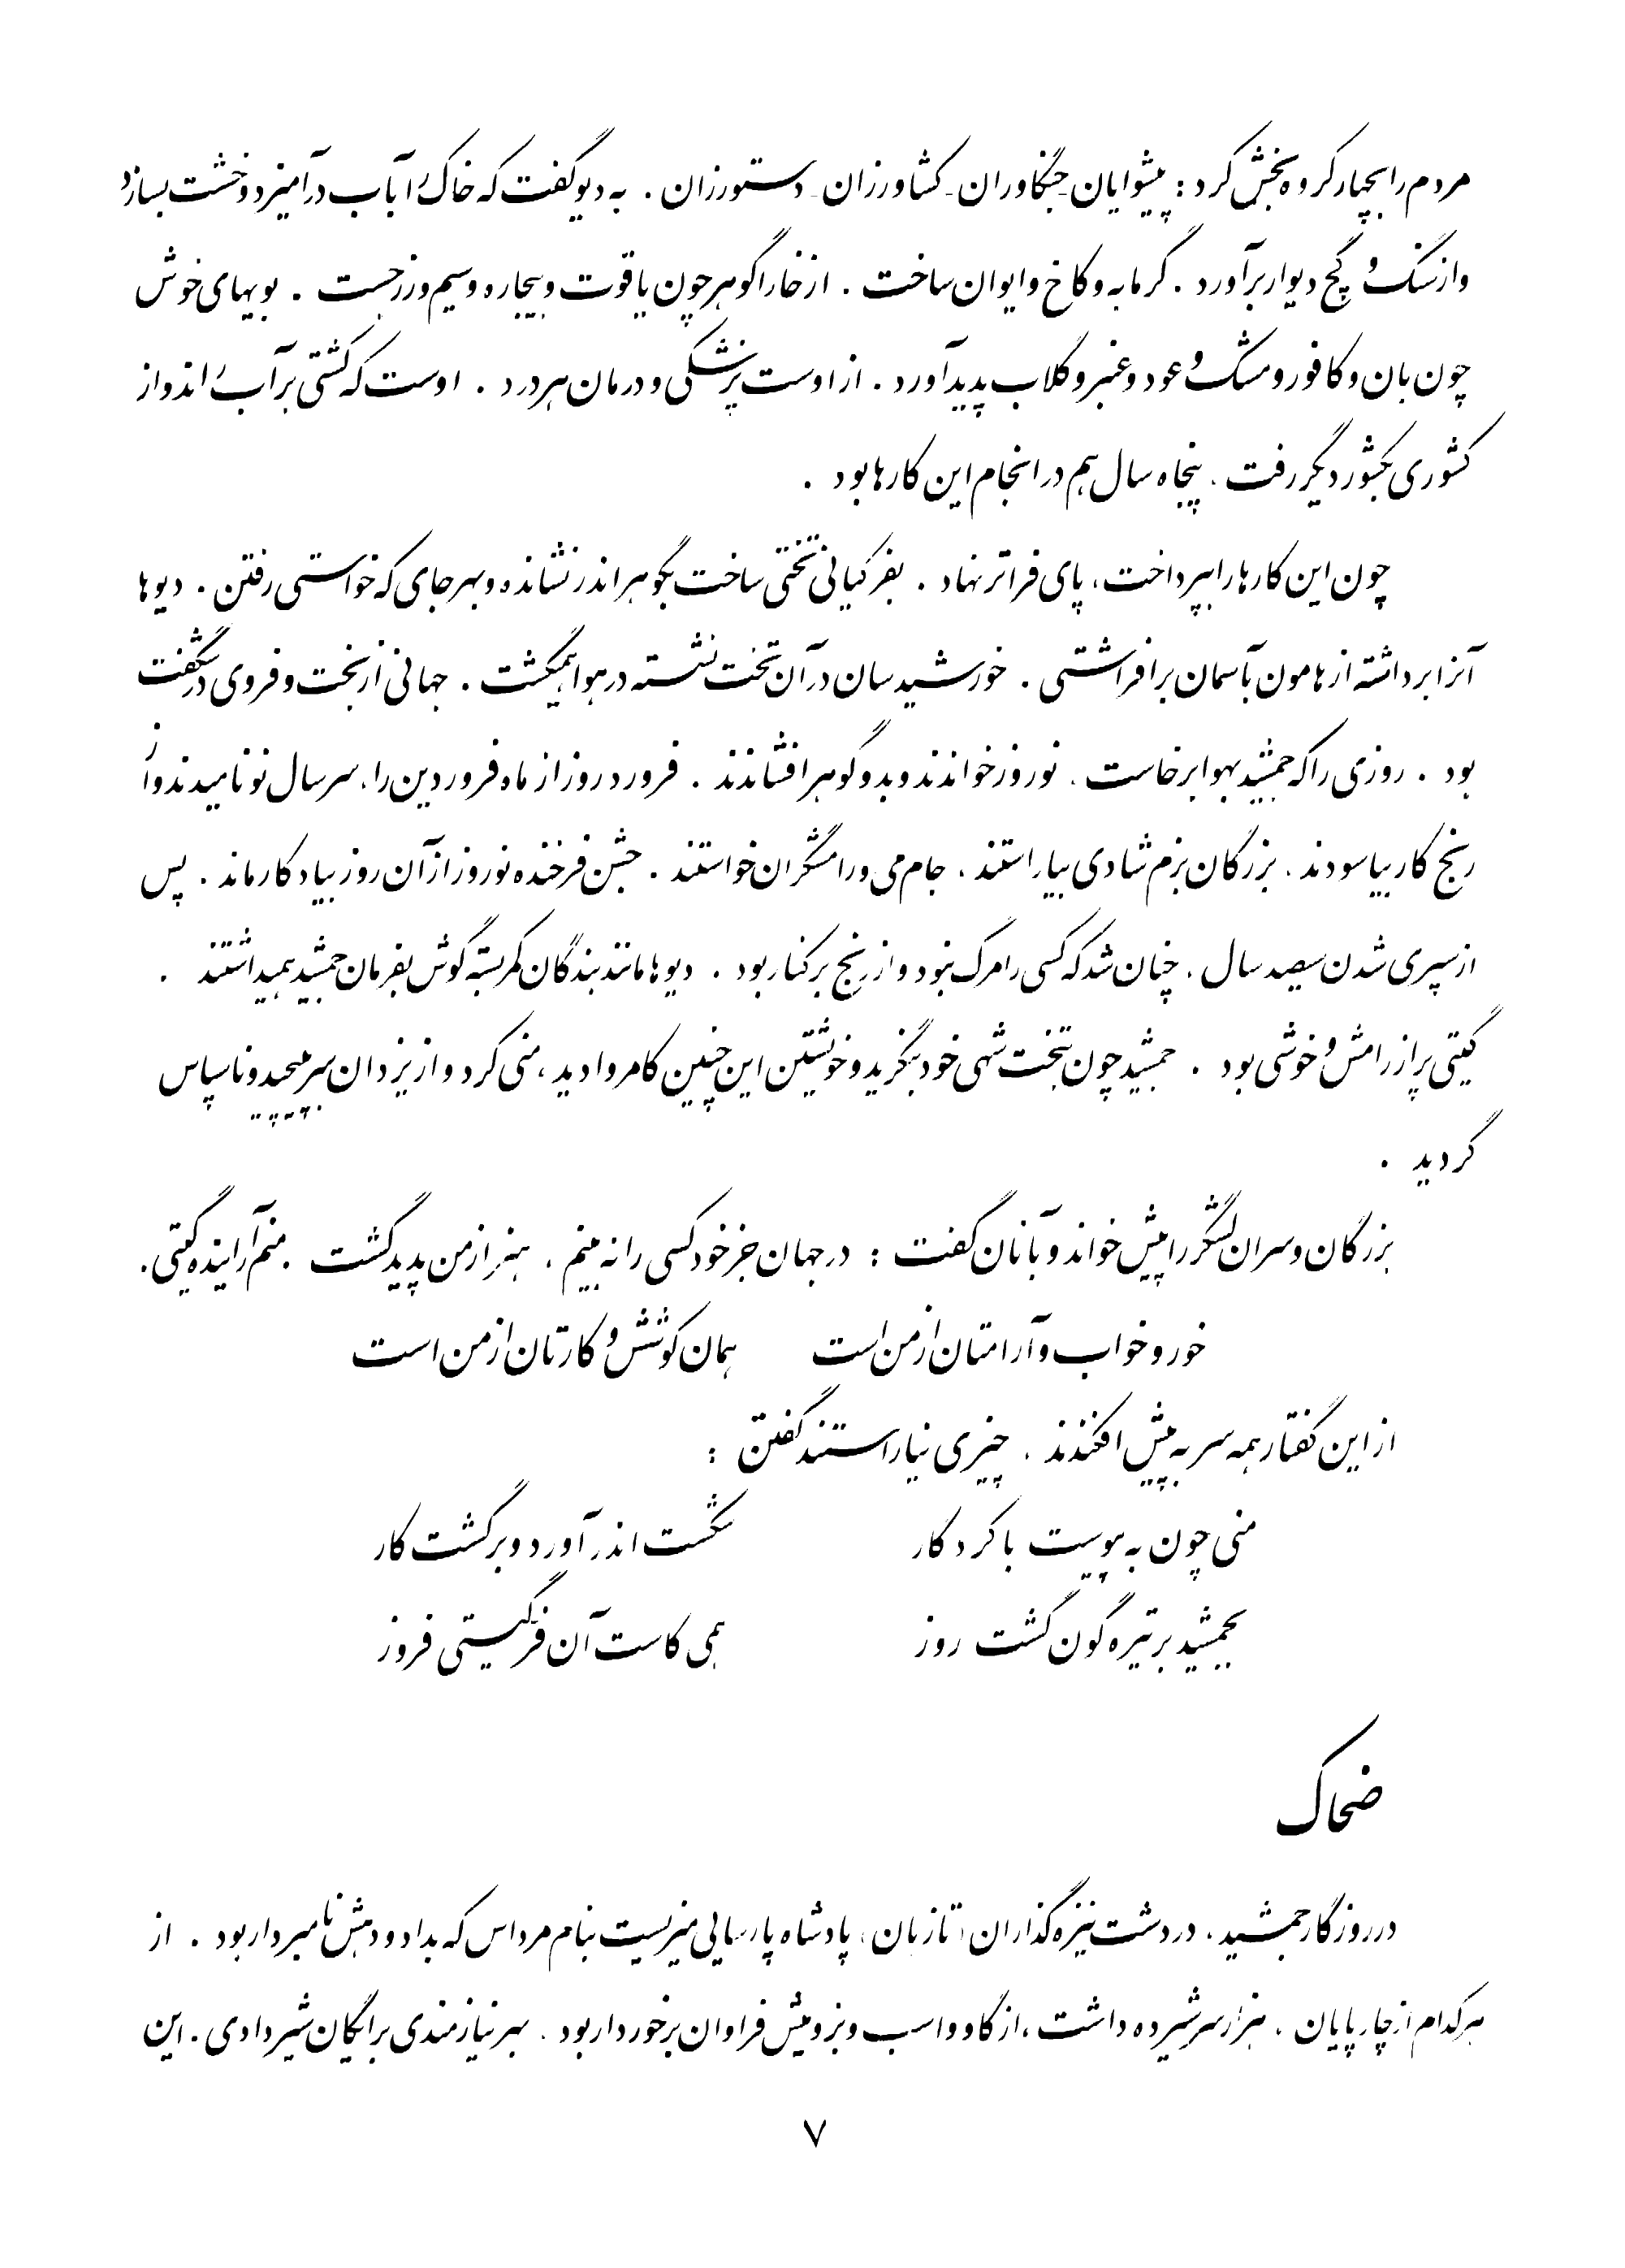 مردم را بچهار گروه بخش کرد : پیشوایان - جنگاوران - کشاورزان - دستورزان . به دیو گفت که خاک را با آب درآمیزد و خشت بسازد
و از سنگ و گچ دیوار برآورد . گرمابه و کاخ و ایوان ساخت . از خارا گوهر چون یاقوت و بیجاده و سیم و زر جست . بویهای خوش
چون بان و کافور و مشک و عود و عنبر و گلاب پدید آورد . از اوست پزشکی و درمان هر درد . اوست که کشتی بر آب راند و از
کشوری بکشور دیگر رفت . پنجاه سال هم در انجام این کارها بود .
چون این کارها را بپرداخت ، پای فراتر نهاد . بفر کیانی تختی ساخت بگوهر اندر نشانده و بهر جای که خواستی رفتن . دیوها
آنرا برداشته از هامون بآسمان برافراشتی . خورشیدسان در آن تخت نشسته در هوا همیگشت . جهانی از بخت و فر وی در شگفت
بود . روزی را که جمشید بهوا برخاست . نوروز خواندند و بدو گوهر افشاندند . فرورد روز از ماه فروردین را ، سر سال نو نامیدند و از
رنج کار بیاسودند . بزرگان بزم شادی بیاراستند ، جام می و رامشگران خواستند . جشن فرخنده نوروز از آن روز بیادگار ماند . پس
از سپری شدن سیصد سال . چنان شد که کسی را مرگ نبود و از رنج برکنار بود . دیوها مانند بندگان کمربسته گوش بفرمان جمشید همیداشتند .
گیتی پر از رامش و خوشی بود . جمشید چون بتخت شهی خود بنگرید و خویشتن این چنین کامروا دید ، منی کرد و از یزدان سر بپیچید و ناسپاس
گردید .
بزرگان و سران لشگر را پیش خواند و بآنان گفت : در جهان جز خود کسی را نه بینم . هنر از من پدید گشت . منم آراینده گیتی .
خور و خواب و آرامتان از من است همان کوشش و کارتان از من است
از این گفتار همه سر به پیش افکندند . چیزی نیاراستند گفتن :
منی چون به پیوست با کردگار شکست اندر آورد و برگشت کار
بجمشید بر تیره گون گشت روز همی کاست آن فر گیتی فروز
ضحاک
در روزگار جمشید ، در دشت نیزه گذاران ، تازیان ، پادشاه پارسایی میزیست بنام مرداس که بداد و دهش نامبردار بود . از
هر کدام از چارپایان . هزار سر شیرده داشت ، از گاو و اسب و بز و میش فراوان برخوردار بود . بهر نیازمندی برایگان شیر دادی . این
۷